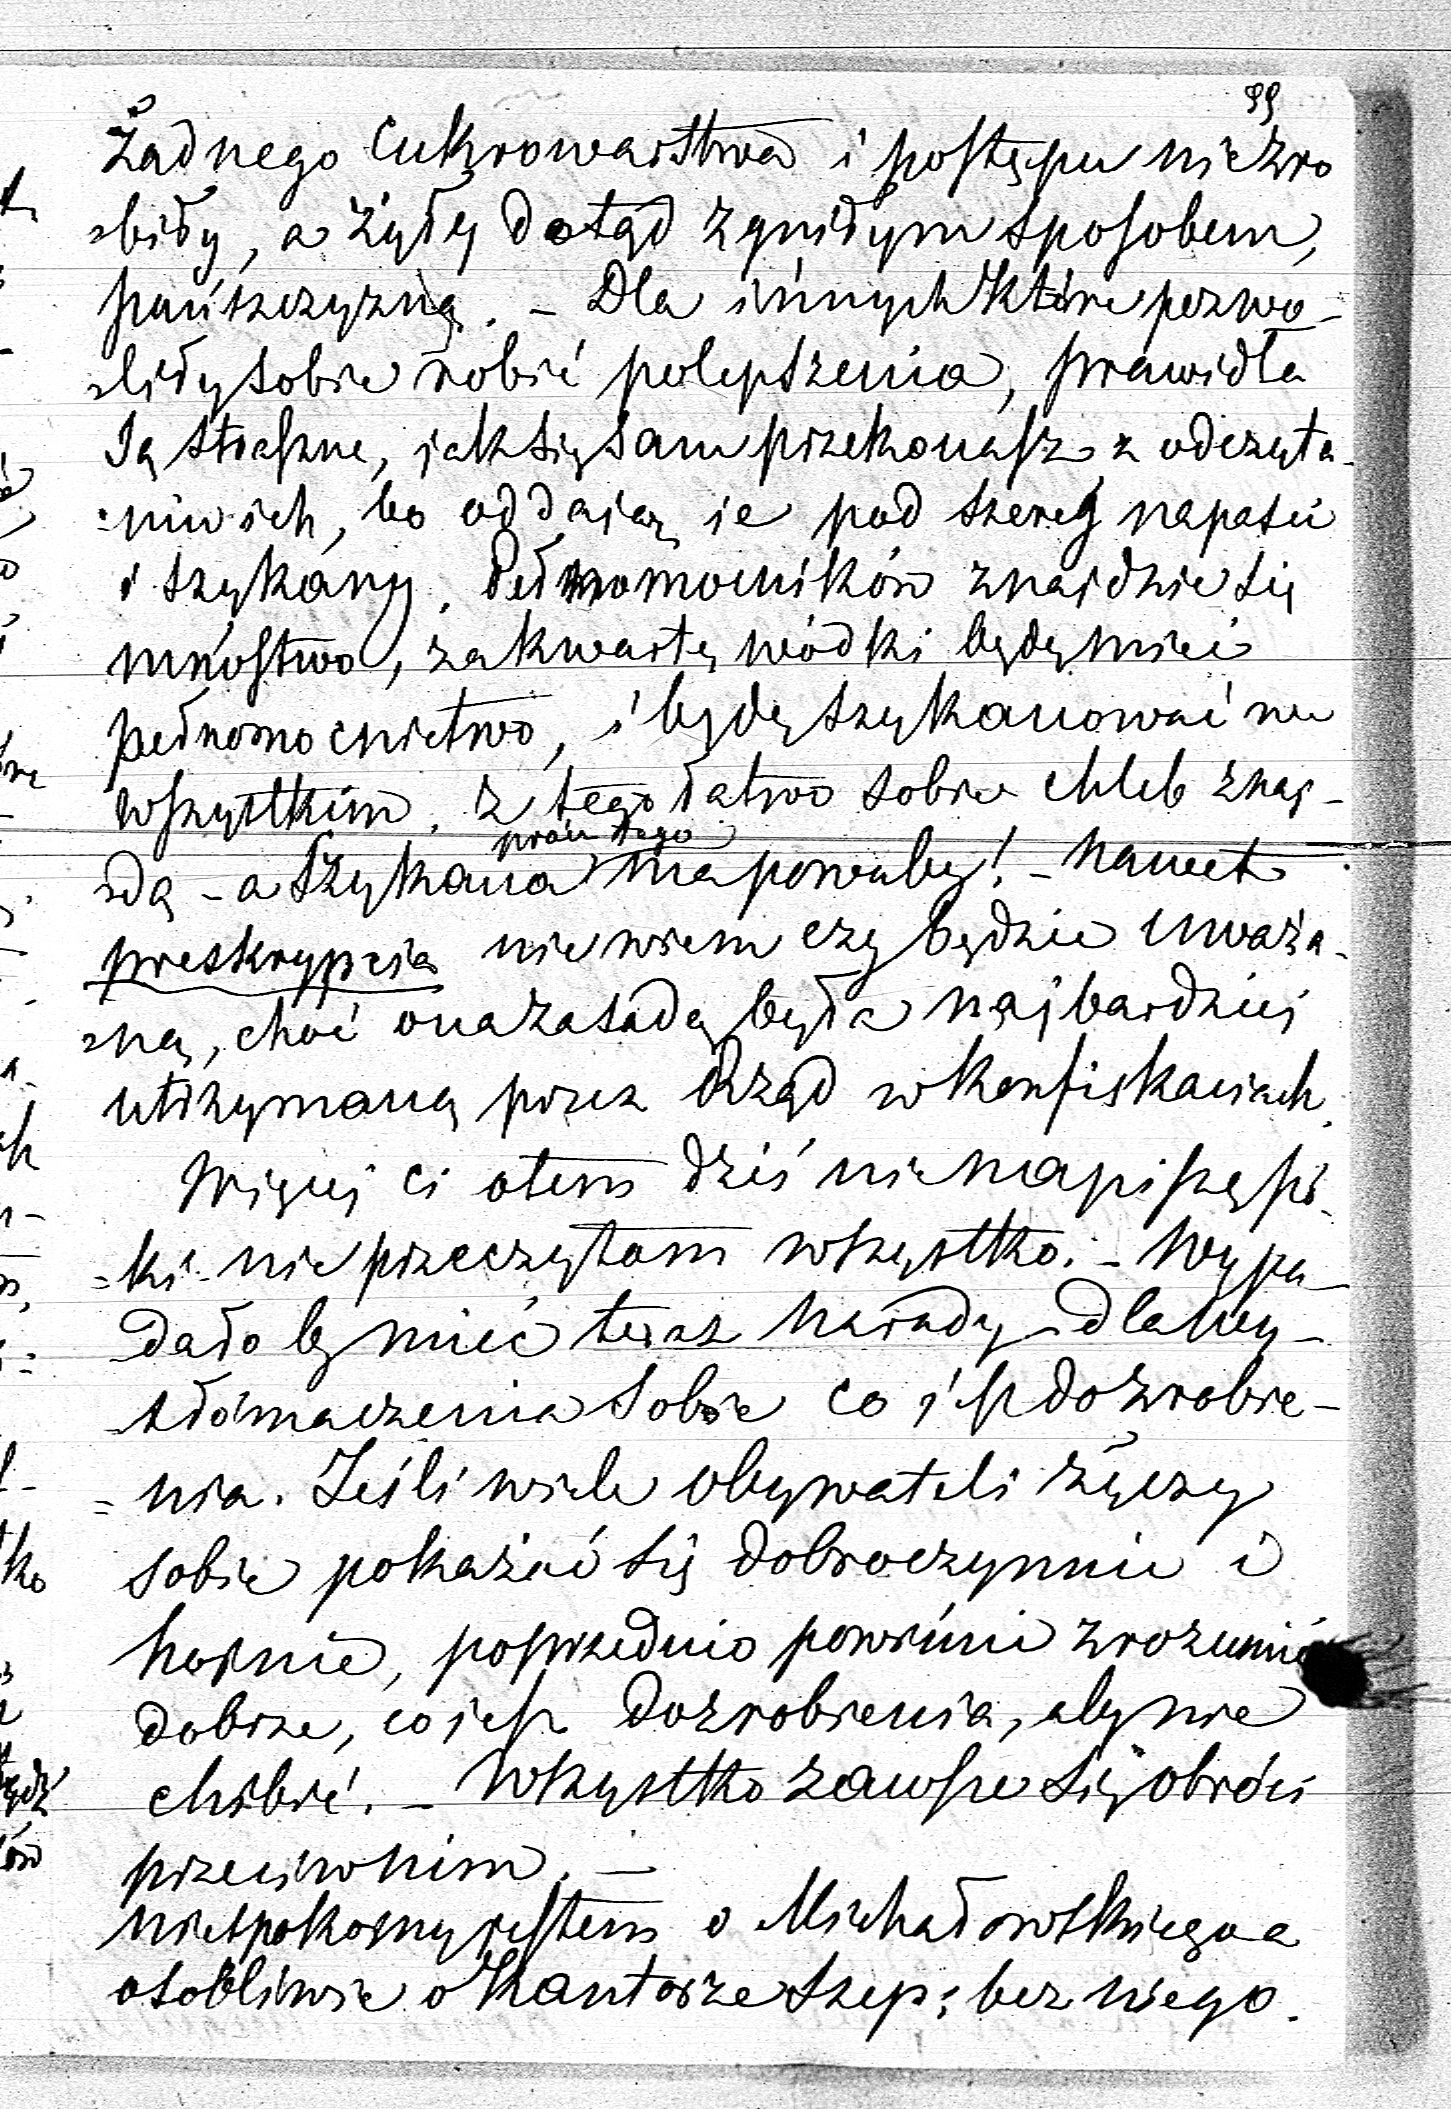 99
Żadnego cukrowarstwa i postępu nie zro
=biły, a żyły dotąd zgniłym sposobem,
pańszczyzną. – Dla innych które pozwo-
=liły sobie robić polepszenia, prawidła
są straszne, jak się sam przekonasz z odczyta-
=niu ich, bo oddają je pod szereg napaści
i szykany. Pełnomocników znajdzie się
mnóstwo, za kwartę wódki będą mieć
pełnomocnictwo, i będą szykanować we
wszystkim. Z tego łatwo sobie chleb znaj-
prawnego
=dą – a szykana ma powaby! – Nawet
preskrypcia nie wiem czy będzie uważa-
=ną, choć ona zasadą była najbardziej
utrzymaną przez Rząd w konfiskaciach.
Więcej ci o tem dziś nie napiszę pó-
=ki nie przeczytam wszystko. – Wypa-
-dało by mieć teraz narady dla wy-
-tłómaczenia sobie co jest do zrobie-
=nia. Jeśli wiele obywateli życzy
sobie pokazać się dobroczynnie i
hojnie, poprzednio powinni zrozumić
dobrze, co jest do zrobienia, aby nie
chibić. – Wszystko zawsze się obróci
przeciw nim. –
Niespokojny jestem o Michałowskiego a
osobliwie o Kantorze Szep: bez niego.